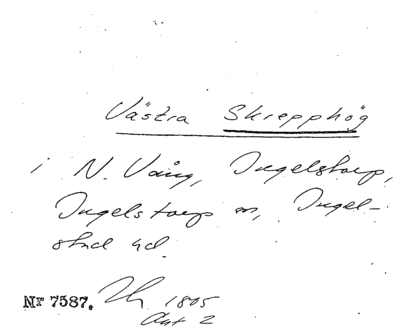 Västra Skrepphög
i N. Vång, Ingelstorp,
Ingelstorp sn, Ingel-
stad hd.
Nr 7587. 1805
Akt 2